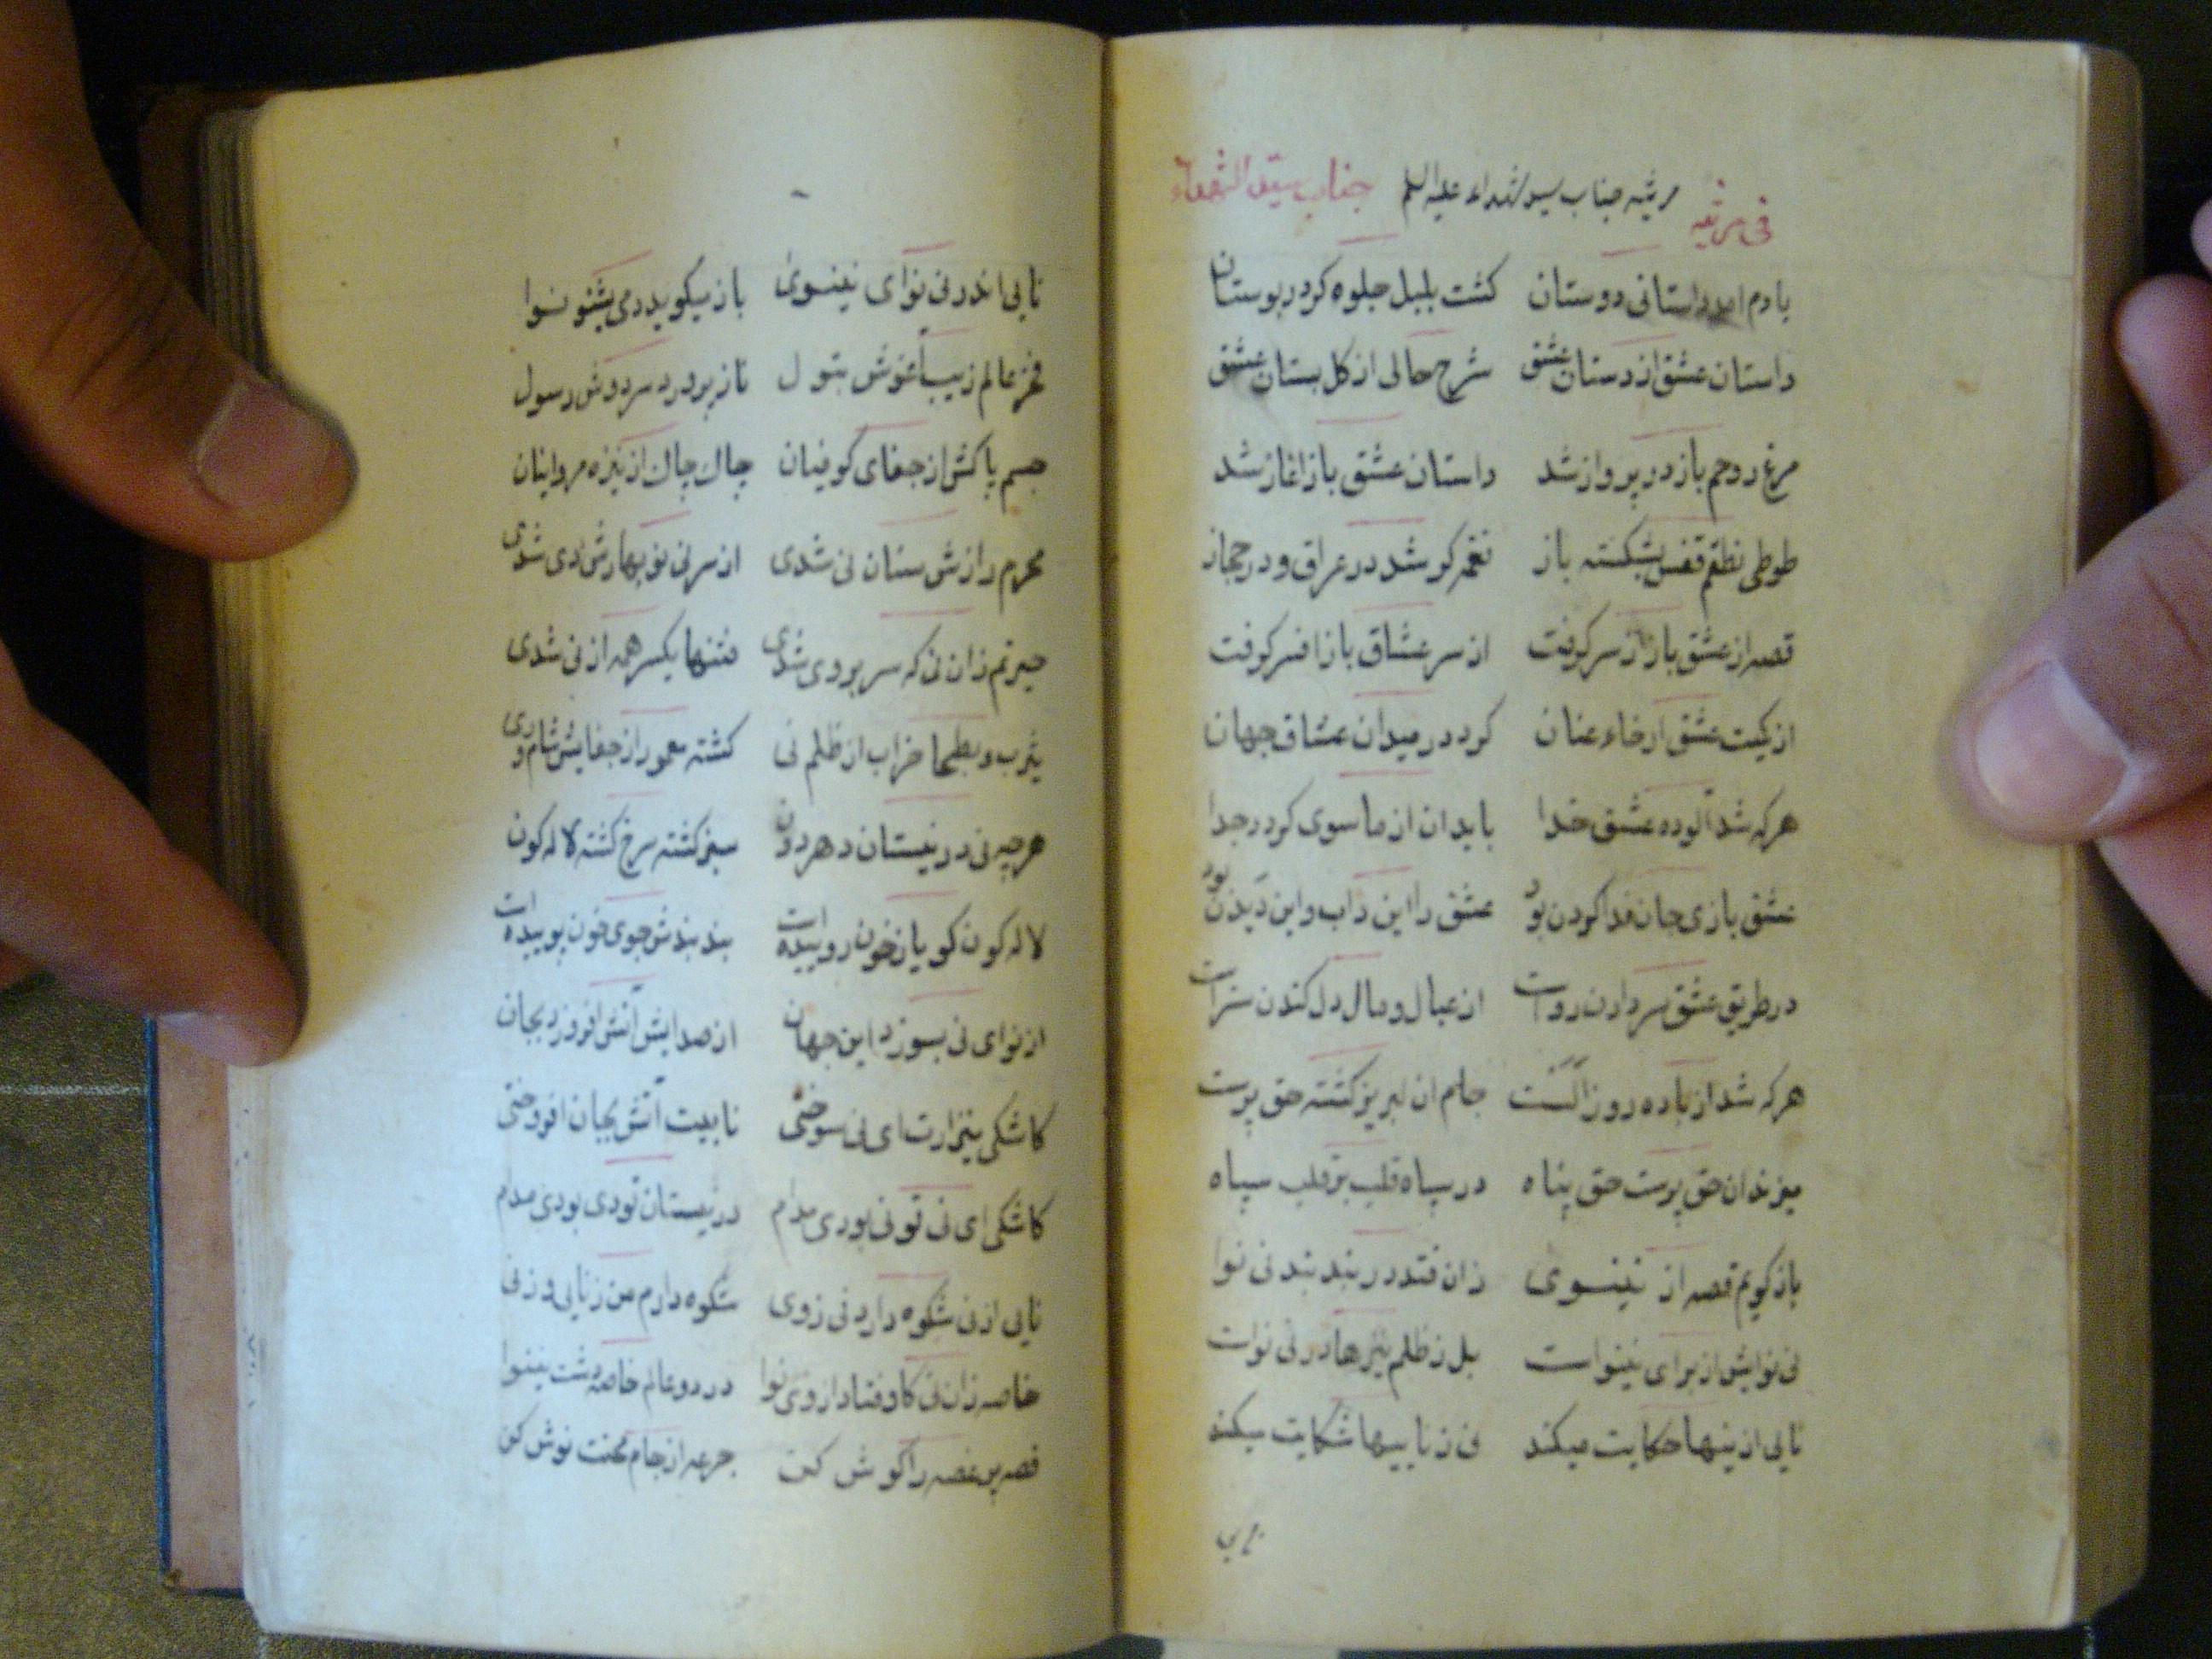 فی مرثیه مرثیه جناب سید الشهداء علیه السلم جناب سید الشهداء
یادم امد داستانی دوستان کشت بلبل جلوه کرد در بوستان
داستان عشق از دستان عشق شرح حالی از کل بستان عشق
مرغ روحم باز در پرواز شد داستان عشق باز اغاز شد
طوطی نطقم قفس بشکسته باز نغمه کر شد در عراق و در حجاز
قصه از عشق باز از سر کرفت از سر عشاق باز افسر کرفت
از کیت عشق ارخاء عنان کرد در میدان عشاق جهان
هر که شد آلوده عشق خدا باید ان از ماسوی کردد جدا
عشق بازی جان فدا کردن بود عشق را این داب و این دیدن بود
در طریق عشق سر دادن رواست از عیال و مال دل کندن سزاست
هر که شد از باده روز الست جام ان لبریز کشته حق پرست
میزند ان حق پرست حق پناه در سپاه قلب بر قلب سپاه
باز کویم قصه از نینوی زان فتد در بند بند نی نوا
نی نوایش از برای نینواست بل ز ظلم نیزها در نی نواست
نایی از نیها حکایت میکند نی ز ناییها شکایت میکند
نایی
نایی اندر نی نوای نینوی باز میکوید دمی بشنو نوا
فخر عالم زیب آغوش بتول ناز پرورد سر دوش رسول
جسم پاکش از جفای کوفیان چاك چاك از نیزه مروانیان
محرم رازش سنان نی شدی از سر نی نو بهارش دی شدی
حیرتم زان نی که سر بر وی شدی فتنها یکسر همه از نی شدی
یثرب و بطحا خراب از ظلم نی کشته معمور از جفایش شام و ری
هر چه نی در نیستان دهر دون سبز کشته سرخ کشته لاله کون
لاله کون کویا ز خون روییده است بند بندش جوی خون بوییده است
از نوای نی بسوزد این جهان از صدایش آتش افروزد بجان
کاشکی نیزارت ای نی سوختی نایبت آتش بجان افروختی
کاشکی ای نی تو نی بودی مدام در نیستان تو دی بودی مدام
نایی از نی شکوه دارد نی ز وی شکوه دارم من ز نایی و ز نی
خاصه زان نی کاوفتاد از وی نوا در دو عالم خاصه دشت نینوا
قصه پر غصه را کوش کن جرعه از جام محنت نوش کن